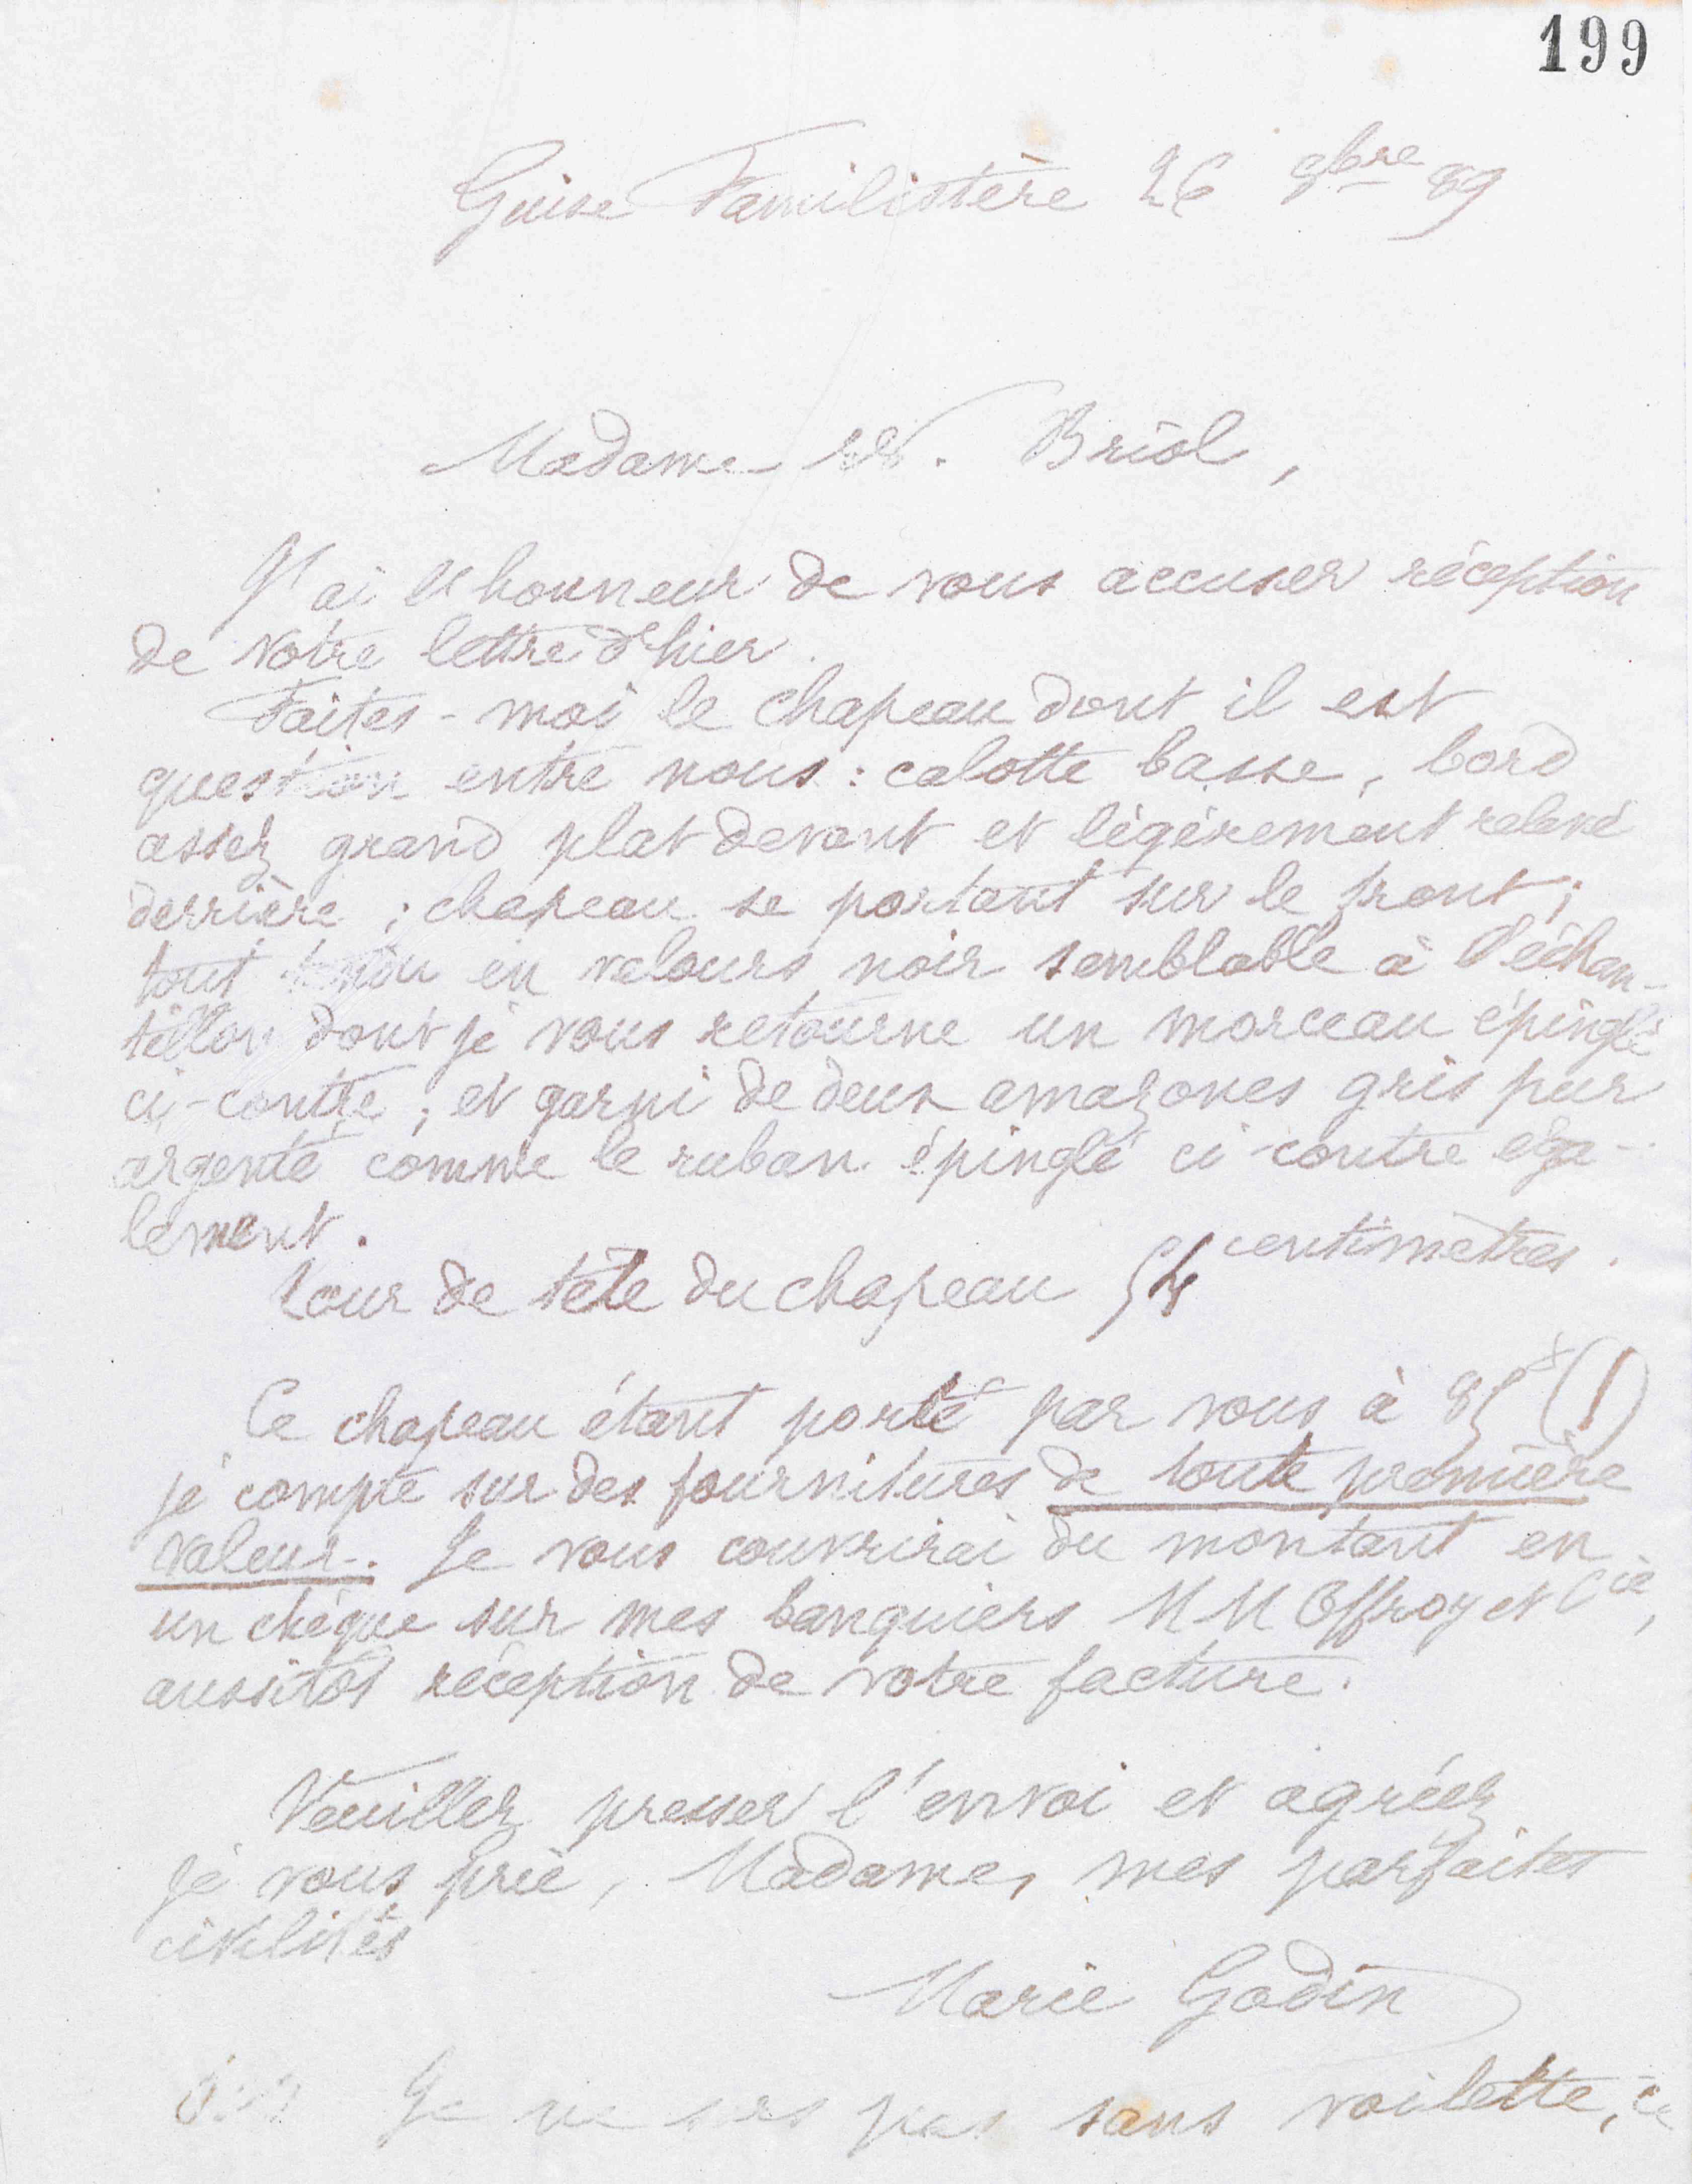 199
Guise Familistère 26 8bre 89
Madame Briol,
J'ai l'honneur de vous accuser réception
de votre lettre d'hier.
Faites-moi le chapeau dont il est
question entre nous : calotte basse, bord
assez grand plat devant et légèrement relevé
derrière ; chapeau se portant sur le front ;
tout tendu en velours noir semblable à l'échan-
tillon dont je vous retourne un morceau épinglé
ci-contre ; et garni de deux amazones gris pur
argenté comme le ruban épinglé ci-contre éga-
lement.
tour de tête du chapeau 54 centimètres.
Ce chapeau étant porté par vous à 85f (1)
je compte sur des fournitures de toute première
valeur. Je vous couvrirai du montant en
un chèque sur mes banquiers MM Offroy et Cie,
aussitôt réception de votre facture.
Veuillez presser l'envoi et agréez
je vous prie, Madame, mes parfaites
civilités
Marie Godin
Je ne pas sans voilette, ce